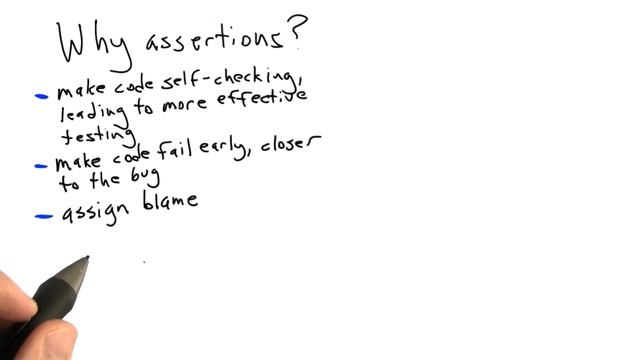 Why assertions?
- make code self-checking,
leading to more effective
testing
- make code fail early, closer
to the bug
- assign blame